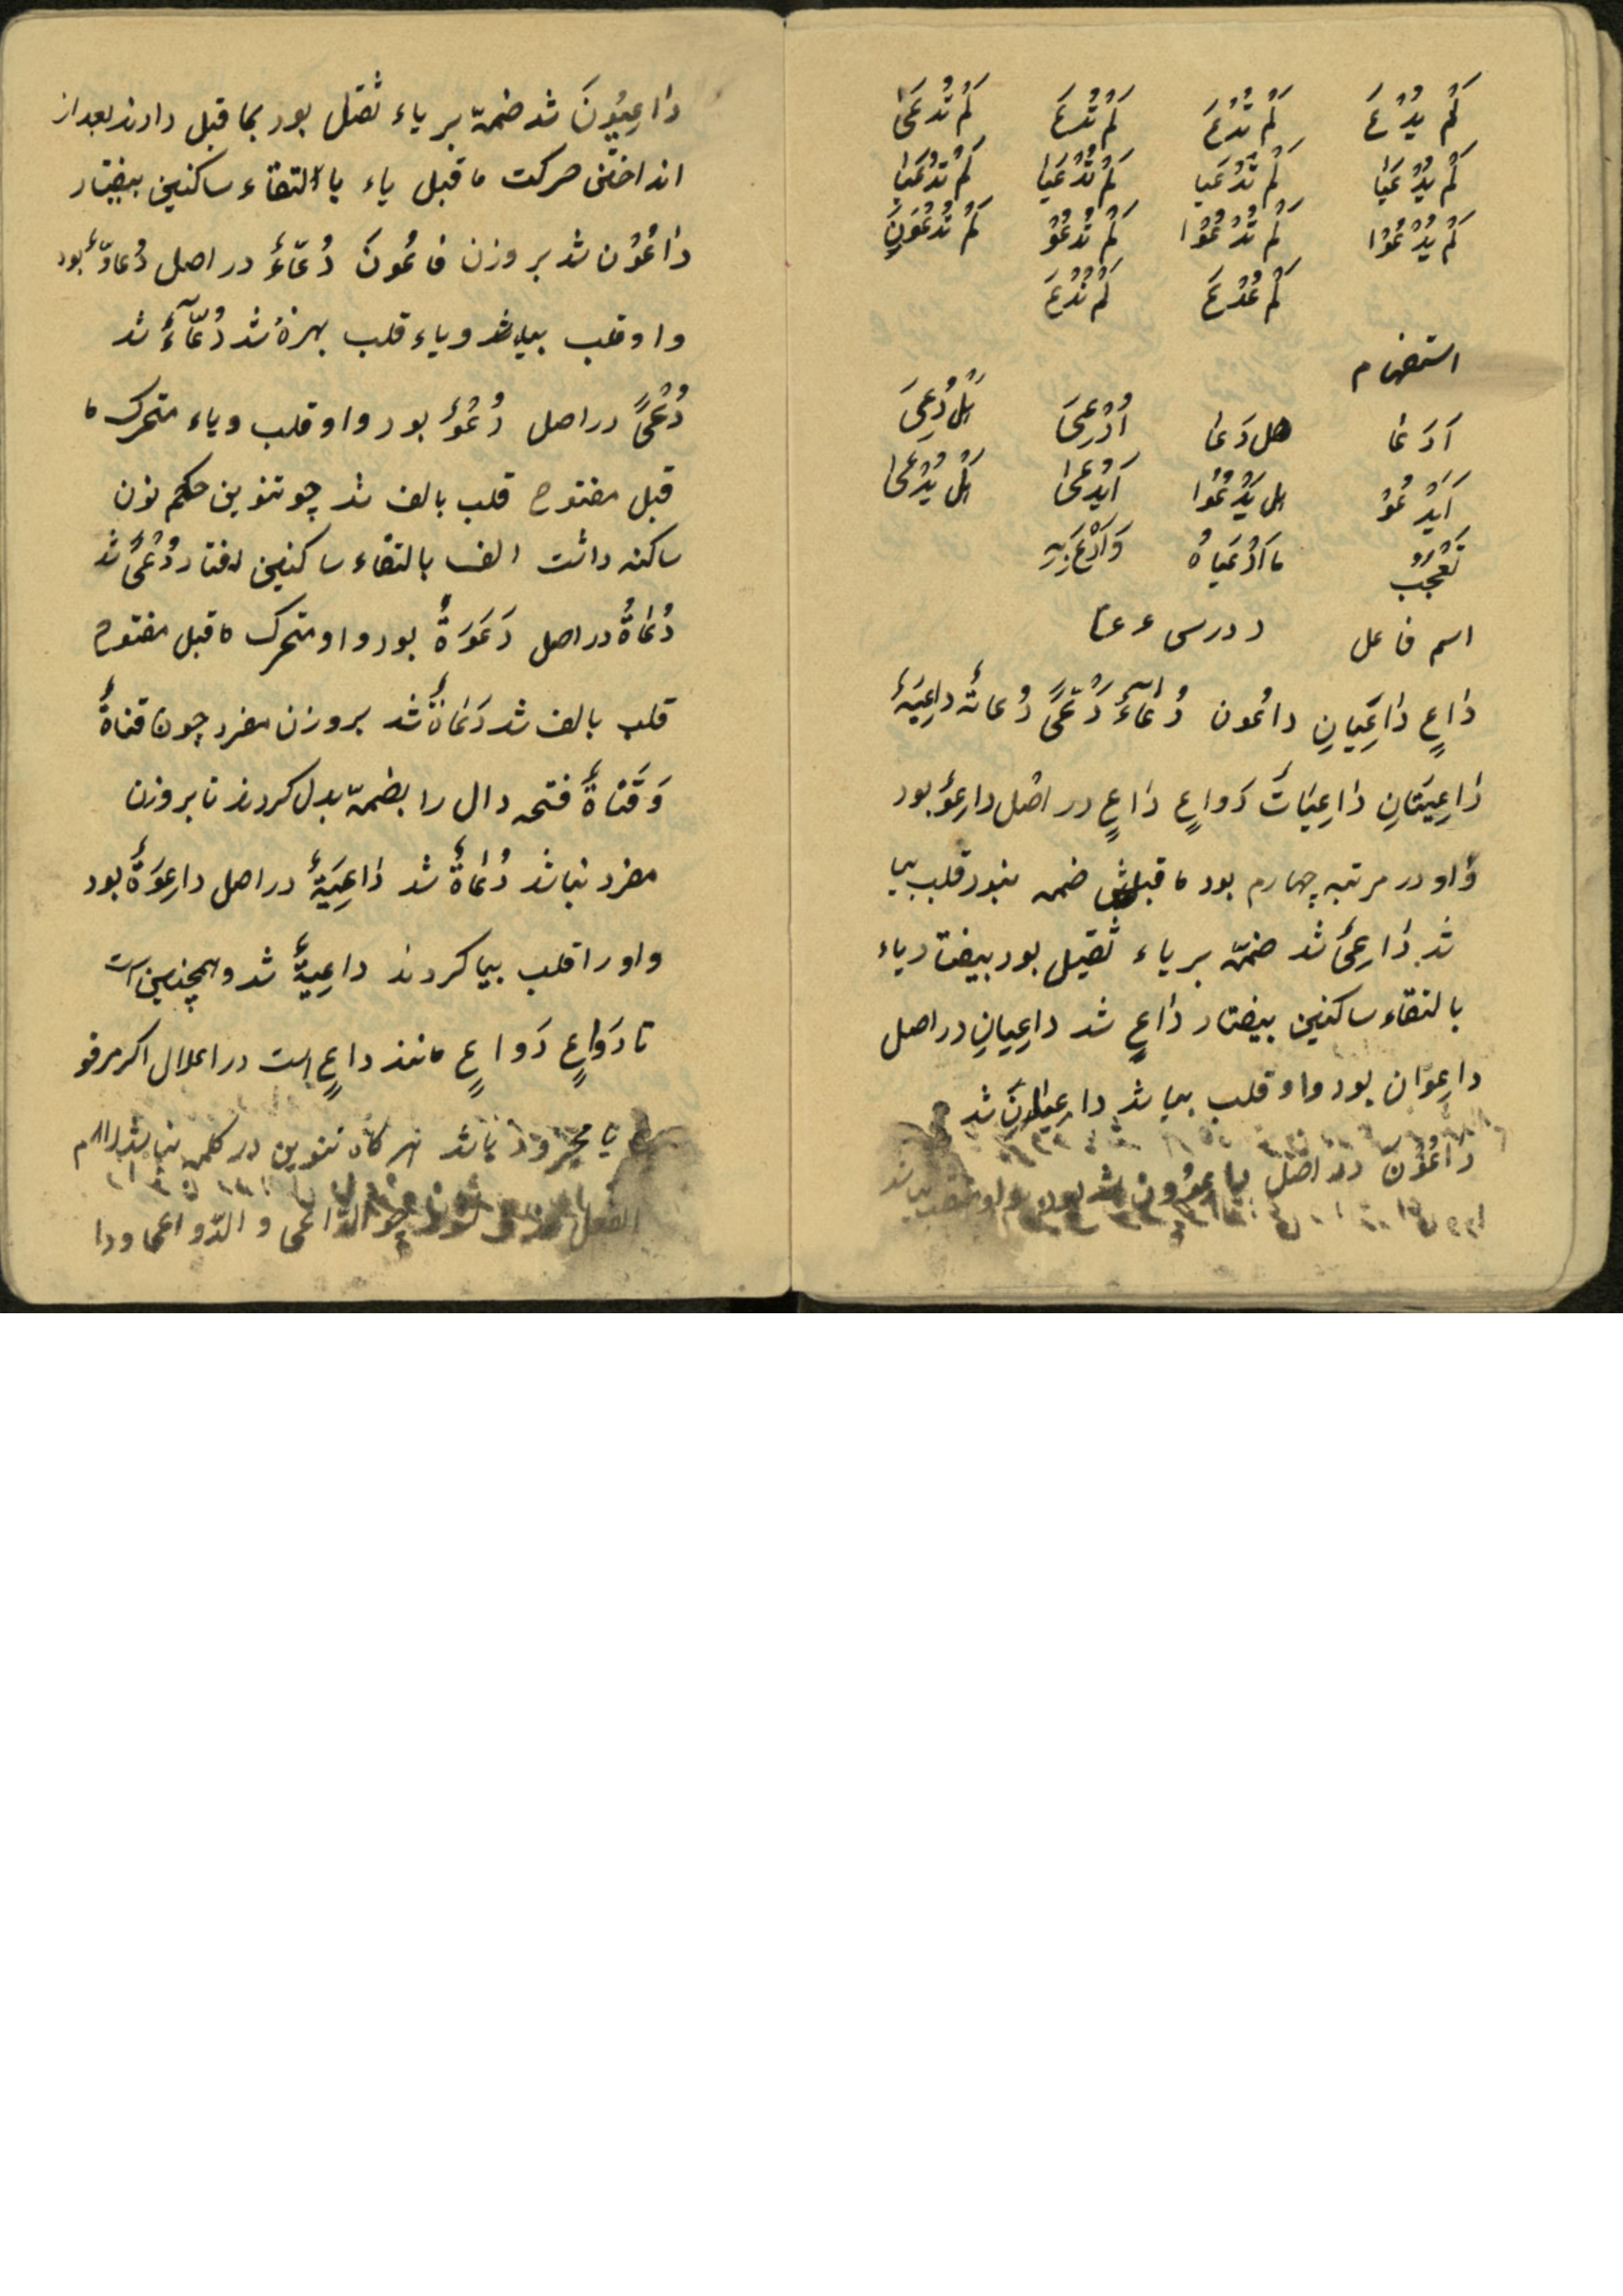 لَمْ يُدْعَ لَمْ تُدْعَ لَمْ تُدْعَ لَمْ تُدْعَىٰ
لَمْ يُدْعَيٰا لَمْ تُدْعَيا لَمْ تُدْعَيٰا لَمْ تُدْعَيٰا
لَمْ يُدْعُوْا لَمْ تُدْعُوْا لَمْ تُدْعُوْ لَمْ تُدْعُوَنَ
لَمْ نُدْعَ
استفهام
اَدَعٰا هل دَعٰا اُدُعِىَ هَلْ دُعِىَ
اَيَدْعُوْ هل يَدْعُوْا اَيُدْعىٰ هَلْ يُدْعىٰ
تَعَجُّبْ مٰا اَدْعَياهُ وَاَدْعَ بِهِ
اسم فاعل درس
دٰاعٍ دٰاعِيَانِ داعُون دُعّاءٌ دُعّىً دُعاتٌ داعِيَةٌ
دٰاعِيَتٰانِ دٰاعِيٰاتٌ دَواعٍ دٰاعٍ در اصل داعِوٌ بود
واو در مرتبه چهارم بود ماقبلش ضمه نبود قلب بيا
شد دٰاعِىٌ شد ضمّه بر ياء ثقيل بود بيفتاد ياء
بالتقاء ساكنين بيفتاد دٰاعٍ شد داعِيانِ در اصل
داعِوَان بود واو قلب بيا شد داعِيانِ شد
دٰاعُوْنَ در اصل
دٰاعِيُونَ شد ضمّه بر ياء ثقيل بود بما قبل دادند بعد از
انداختن حركت ما قبل ياء بالتقاء ساكنين بيفتاد
دٰاعُوْن شد بر وزن فٰاعُونَ دُعّاءٌ در اصل دُعّاوٌ بود
واو قلب بياء شد وياء قلب بهمزهٔ شد دُعّآءٌ شد
دُعّىً در اصل دُعَّوٌ بود واو قلب وياء متحرك ما
قبل مفتوح قلب بالف شد چو تنوين حكم نون
ساكنه داشت الف بالتقاء ساكنين افتاد دُعًّى شد
دُعٰاةٌ در اصل دَعَوَةٌ بود واو متحرك ما قبل مفتوح
قلب بالف شد دَعٰاةٌ شد بر وزن مفرد چون قناةٌ
وَقَنٰاةٌ فتحه دال را بضمّه بدل كردند تا بر وزن
مفرد نباشد دُعٰاةٌ شد دٰاعِيَةٌ در اصل داعِوَةٌ بود
واو را قلب بيا كردند داعِيةٌ شد وهمچنين است
تا دَوٰاعٍ دَواعٍ مانند داعٍ است در اعلال اگر مرفو
يا مجرور باشد هر گاه تنوين در كلمه نباشد لام
الفعل چو الدّاعى و الدّواعى ودا